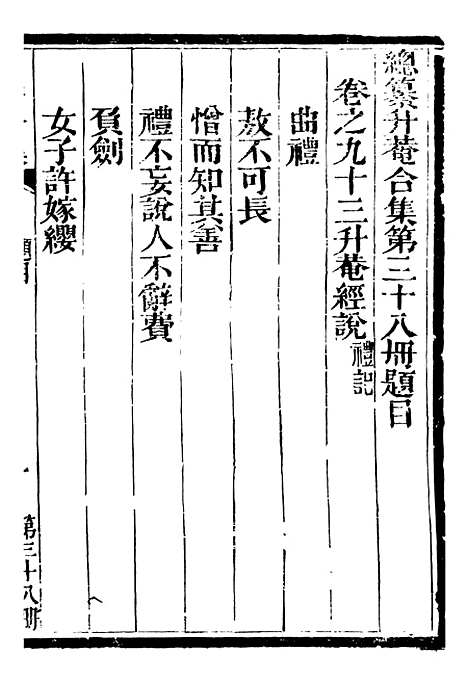 總纂升菴合集第三十八冊題目
卷之九十三升菴經說禮記
曲禮
敖不可長
憎而知其善
禮不妄說人不辭費
負劍
女子許嫁纓
題目
一
第三十八冊